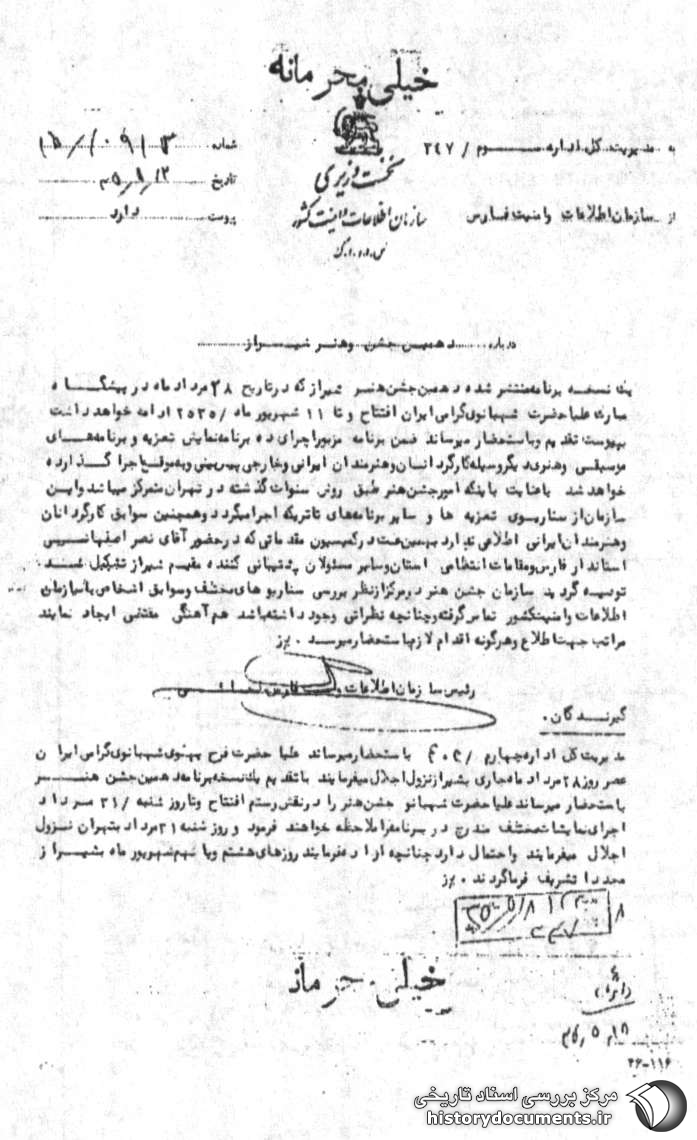 خیلی محرمانه
به مدیریت کل اداره سوم / ۳۴۷
شماره
نخست وزیری
تاریخ
سازمان اطلاعات و امنیت کشور
از سازمان اطلاعات و امنیت فارس
پیوست دارد
درباره دهمین جشن وهنر شیراز
یک نسخه برنامه منتشر شده دهمین جشن هنر شیراز که در تاریخ ۲۸ مرداد ماه در پیشگاه
مبارک علیا حضرت شهبانوی گرامی ایران افتتاح و تا ۱۱ شهریور ماه /۲۵۳۵ ادامه خواهد داشت
به پیوست تقدیم و باستحضار میرساند ضمن برنامه مزبور اجرای ده برنامه نمایش تعزیه و برنامه های
موسیقی و هنری دیگر وسیله کارگردانان و هنرمندان ایرانی و خارجی پیش بینی و بموقع باجرا گذارده
خواهد شد با عنایت باینکه امور جشن هنر طبق روش سنوات گذشته در تهران متمرکز میباشد و این
سازمان از سناریوی تعزیه ها و سایر برنامه های تئاتریکه اجرا میگردد و همچنین سوابق کارگردانان
و هنرمندان ایرانی اطلاعی ندارد بهمین علت در کمیسیون مقدماتی که در حضور آقای نصر اصفهانی
استاندار فارس و مقامات انتظامی استان و سایر مسئولان پشتیبانی کننده مقیم شیراز تشکیل شد
توصیه گردید سازمان جشن هنر در مرکز از نظر بررسی سناریو های مختلف و سوابق اشخاص با سازمان
اطلاعات و امنیت کشور تماس گرفته و چنانچه نظراتی وجود داشته باشد هم آهنگی مقتضی ایجاد نمایند
مراتب جهت اطلاع و هرگونه اقدام لازم باستحضار میرسد .
رئیس سازمان اطلاعات و فارس
گیرندگان .
مدیریت کل اداره چهارم / باستحضار میرساند علیا حضرت فرح پهلوی شهبانوی گرامی ایران
عصر روز ۲۸ مرداد ماه جاری بشیراز نزول اجلال میفرمایند با تقدیم یک نسخه برنامه دهمین جشن هنر
باستحضار میرساند علیا حضرت شهبانو جشن هنر را در نقش رستم افتتاح و تا روز شنبه /۳۱ مرداد
اجرای نمایشات مختلف مندرج در برنامه را ملاحظه خواهند فرمود و روز شنبه ۳۱ مرداد بتهران نزول
اجلال میفرمایند و احتمال دارد چنانچه اراده فرمایند روزهای هشتم و یا نهم شهریور ماه بشیراز
مجددا تشریف فرما گردند .
خیلی محرمانه
۳۶-۱۱۶
مرکز بررسی اسناد تاریخی
historydocuments.ir